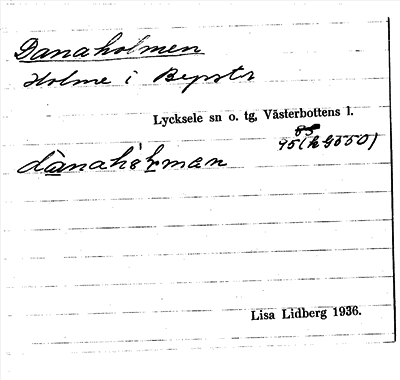 Danaholmen
Holme i
Lycksele sn o. tg, Västerbottens l.
85
95(h 9550)
dànahòḷmæn
Lisa Lidberg 1936.